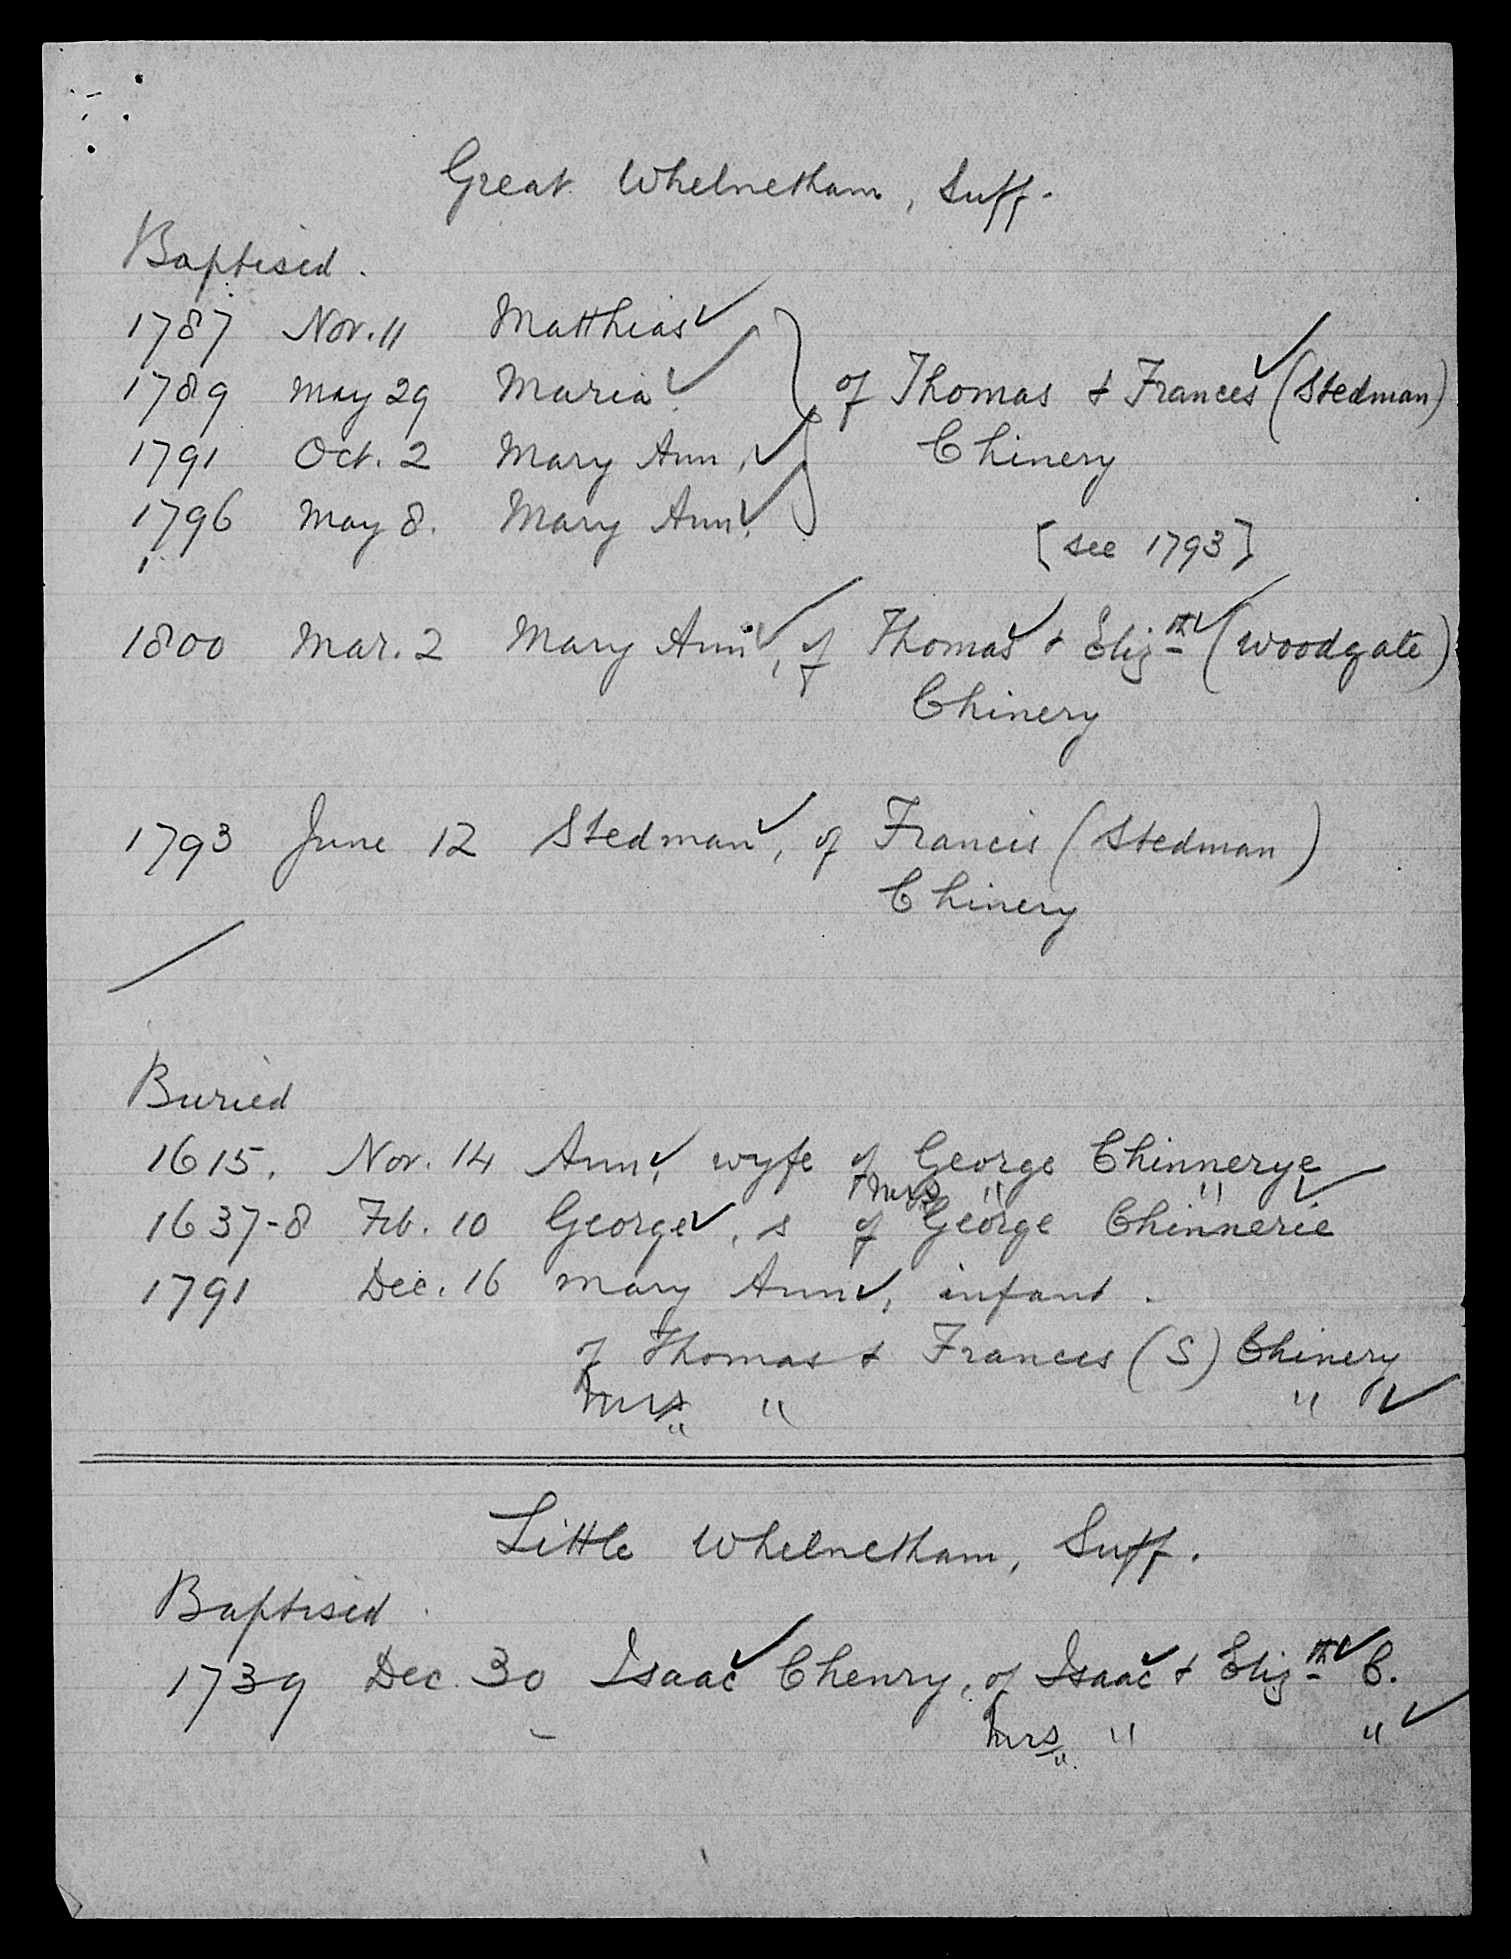 Great Whelnetham, Suff.
Baptised.
1787 Nov. 11 Matthias ✓
1789 May 29 Maria ✓ } of Thomas & Frances ✓ (Stedman)
1791 Oct. 2 Mary Ann, ✓ Chinery
1796 May 8. Mary Ann ✓
[see 1793]
1800 Mar. 2 Mary Ann ✓, of Thomas ✓ & Eliz th ✓ (Woodgate)
Chinery
1793 June 12 Stedman ✓, of Francis (Stedman)
Chinery
Buried
1615, Nov. 14 Ann ✓, wyfe of George Chinnerye
Mrs " " ✓
1637-8 Feb. 10 George ✓, s of George Chinnerie
1791 Dec. 16 Mary Ann ✓, infant.
of Thomas & Frances (S) Chinery
Mrs " " " ✓
Little Whelnetham, Suff.
Baptised
1739 Dec. 30 Isaac ✓ Chenry, of Isaac ✓ & Eliz th ✓ C.
Mrs " " " ✓